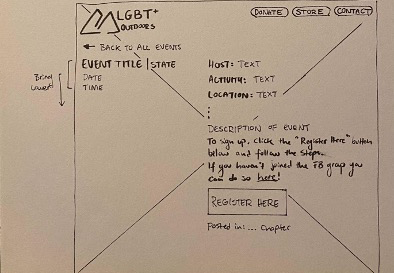 LGBT+
OUTDOORS
DONATE STORE CONTACT
← BACK TO ALL EVENTS
EVENT TITLE | STATE
DATE
TIME
Bring
Lower
HOST: TEXT
ACTIVITY: TEXT
LOCATION: TEXT
DESCRIPTION OF EVENT
To sign up, click the "Register Here" button
below and follow the steps.
If you haven't joined the FB group you
can do so here!
REGISTER HERE
Posted in: ... Chapter